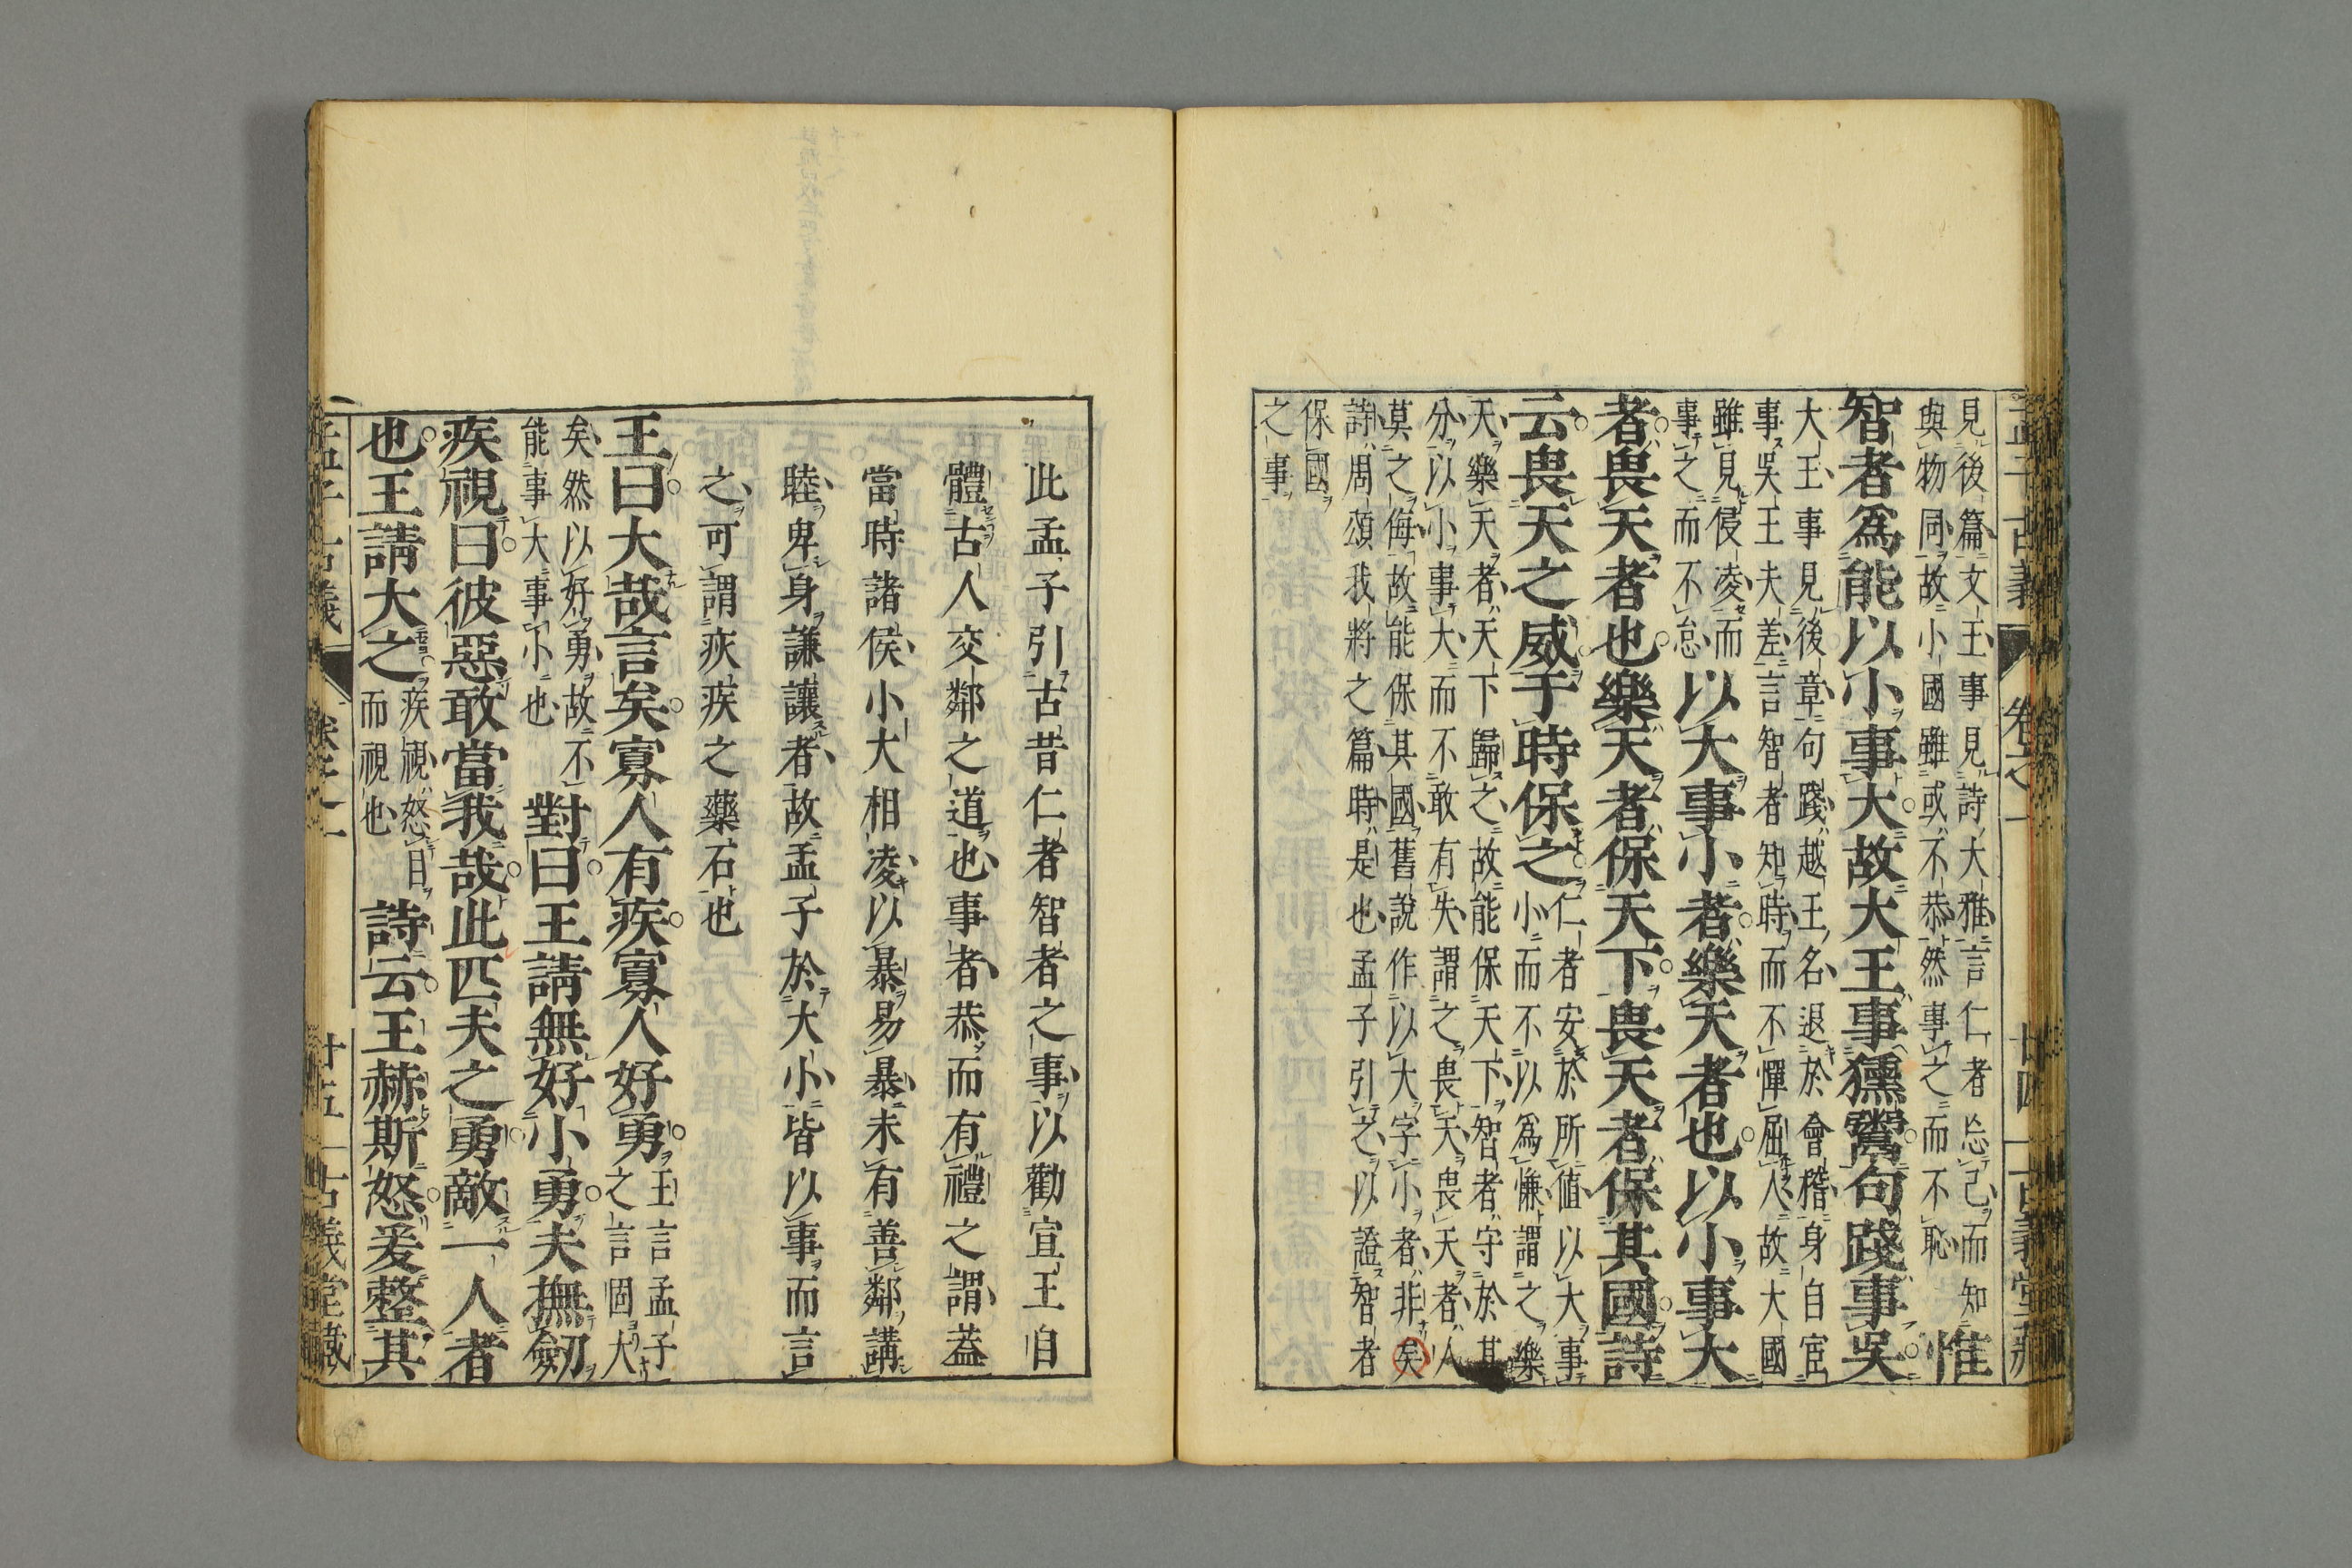 孟子古義 卷之一 廿四 古義堂藏
見後篇文王事見詩大雅言仁者忘己而知
與物同故小國雖或不恭然事之而不恥
惟
智者爲能以小事大故大王事獯鬻句踐事吳
大王事見後章句踐越王名退於會稽身自宦
事吳王夫差言智者知時而不憚屈人故大國
雖見侵凌而
事之而不怠
以大事小者樂天者也以小事大
者畏天者也樂天者保天下畏天者保其國詩
云畏天之威于時保之
仁者安於所値以大事
小而不以爲慊謂之樂
天樂天者天下歸之故能保天下智者守於其
分以小事大而不敢有失謂之畏天畏天者人
莫之侮故能保其國舊說作以大字小者非矣
詩周頌我將之篇時是也孟子引之以證智者
保國
之事
此孟子引古昔仁者智者之事以勸宣王自
體古人交鄰之道也事者恭而有禮之謂蓋
當時諸侯小大相凌以暴易暴未有善鄰講
睦卑身謙讓者故孟子於大小皆以事而言
之可謂疢疾之藥石也
王曰大哉言矣寡人有疾寡人好勇
王言孟子
之言固大
矣然以好勇故不
能事大事小也
對曰王請無好小勇夫撫劒
疾視曰彼惡敢當我哉此匹夫之勇敵一人者
也王請大之
疾視怒目
而視也
詩云王赫斯怒爰整其
孟子古義 卷之一 廿五 古義堂藏